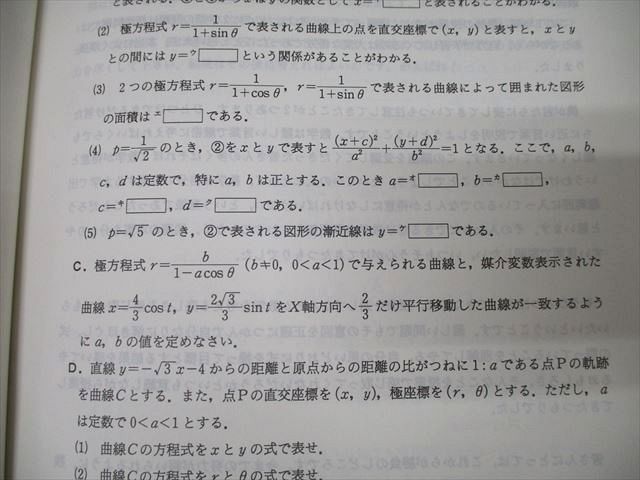 と表されることがわかる.
(2) 極方程式 r=1/(1+sinθ) で表される曲線上の点を直交座標で(x, y)と表すと, xとy
との間には y=ウ□という関係があることがわかる.
(3) 2つの極方程式 r=1/(1+cosθ), r=1/(1+sinθ) で表される曲線によって囲まれた図形
の面積は エ□である.
(4) p=1/√2 のとき, ②をxとyで表すと (x+c)²/a²+(y+d)²/b²=1となる. ここで, a, b,
c, dは定数で, 特にa, bは正とする. このとき a=オ□, b=カ□,
c=キ□, d=ク□である.
(5) p=√5 のとき, ②で表される図形の漸近線は y=ケ□である.
C. 極方程式 r=b/(1−a cosθ) (b≠0, 0<a<1)で与えられる曲線と, 媒介変数表示された
曲線 x=4/3 cos t, y=2√3/3 sin t をX軸方向へ 2/3 だけ平行移動した曲線が一致するよう
にa, bの値を定めなさい.
D. 直線 y=−√3x−4 からの距離と原点からの距離の比がつねに1:aである点Pの軌跡
を曲線Cとする. また, 点Pの直交座標を(x, y), 極座標を(r, θ)とする. ただし, a
は定数で0<a<1とする.
(1) 曲線Cの方程式をxとyの式で表せ.
(2) 曲線Cの方程式をrとθの式で表せ.